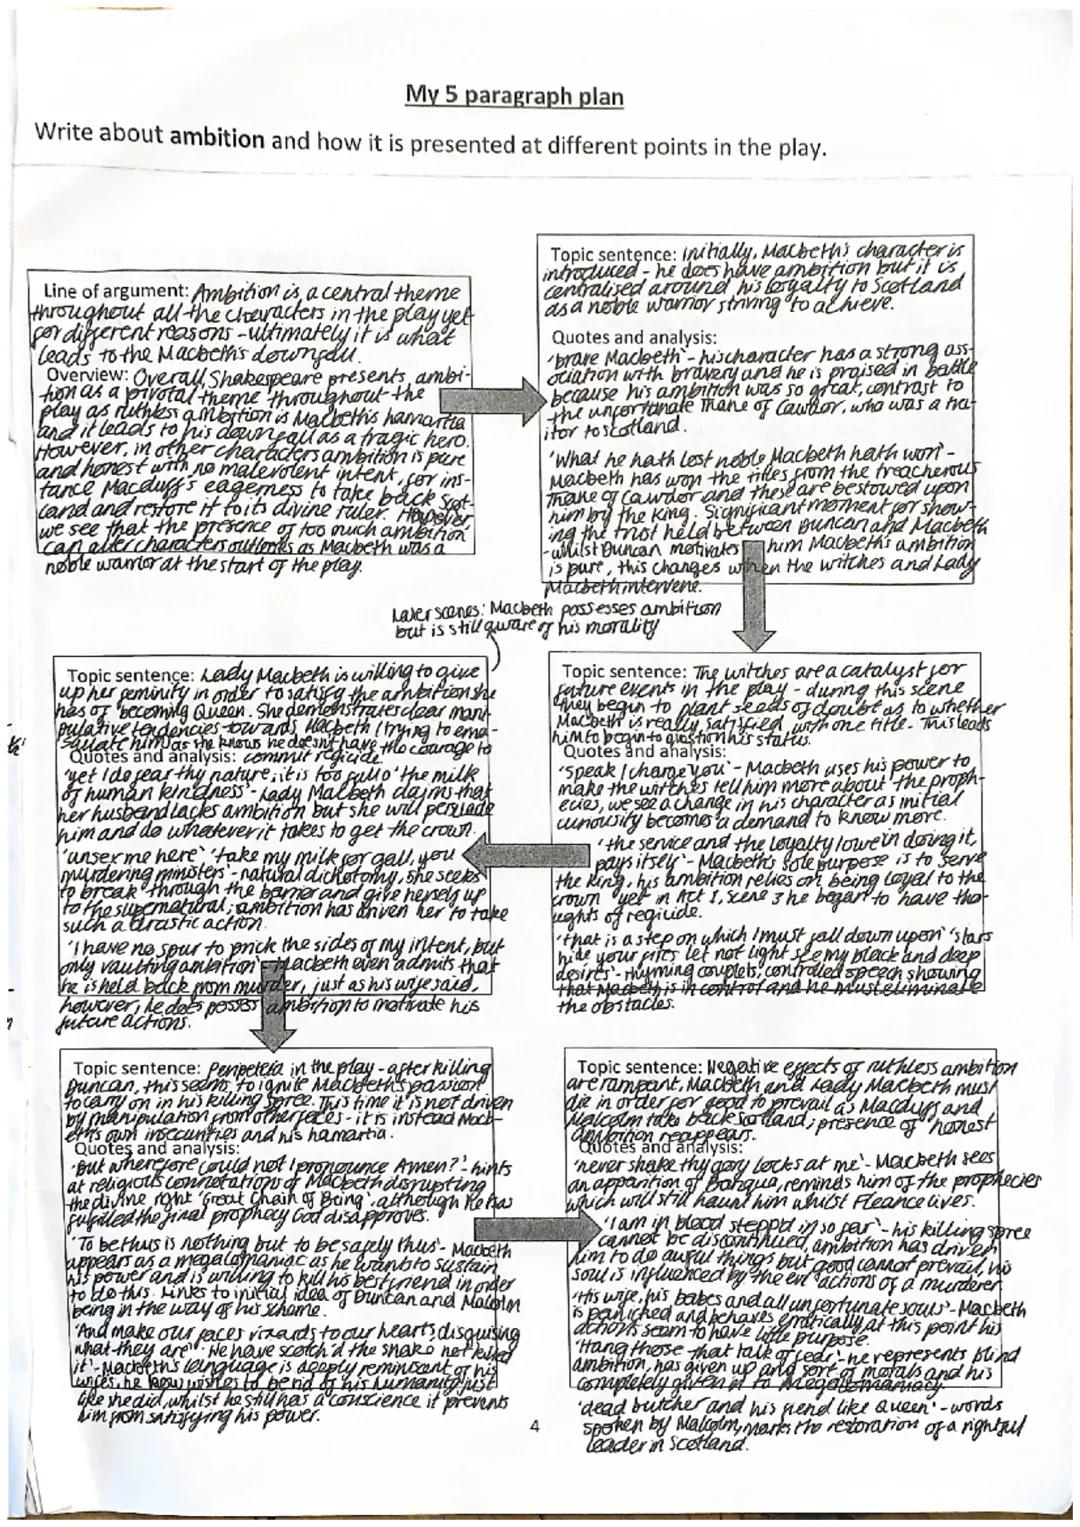 My 5 paragraph plan
Write about ambition and how it is presented at different points in the play.
Line of argument: Ambition is a central theme
throughout all the characters in the play yet
for different reasons - ultimately it is what
leads to the Macbeth's downfall.
Overview: Overall, Shakespeare presents ambi-
tion as a pivotal theme throughout the
play as ruthless ambition is Macbeth's hamartia
and it leads to his downfall as a tragic hero.
However, in other characters ambition is pure
and honest with no malevolent intent, for ins-
tance Macduff's eagerness to take back Scot-
land and restore it to its divine ruler. However,
we see that the presence of too much ambition
can alter characters outlooks as Macbeth was a
noble warrior at the start of the play.
Topic sentence: Initially, Macbeth's character is
introduced - he does have ambition but it is
centralised around his loyalty to Scotland
as a noble warrior striving to achieve.
Quotes and analysis:
'brave Macbeth' - his character has a strong ass-
ociation with bravery and he is praised in battle
because his ambition was so great, contrast to
the unfortunate Thane of Cawdor, who was a tra-
itor to Scotland.
'What he hath lost noble Macbeth hath won' -
Macbeth has won the titles from the treacherous
Thane of Cawdor and these are bestowed upon
him by the King. Significant moment for show-
ing the trust held between Duncan and Macbeth
- whilst Duncan motivates him Macbeth's ambition
is pure, this changes when the witches and Lady
Macbeth intervene.
Later scenes: Macbeth possesses ambition
but is still aware of his morality
Topic sentence: The witches are a catalyst for
future events in the play - during this scene
they begin to plant seeds of doubt as to whether
Macbeth is really satisfied with one title. This leads
him to begin to question his status.
Quotes and analysis:
'Speak I charge you' - Macbeth uses his power to
make the witches tell him more about the proph-
ecies, we see a change in his character as initial
curiousity becomes a demand to know more.
'the service and the loyalty I owe in doing it,
pays itself' - Macbeth's sole purpose is to serve
the King, his ambition relies on being loyal to the
crown yet in Act 1, Scene 3 he began to have tho-
ughts of regicide.
'that is a step on which I must fall down upon' 'stars
hide your fires let not light see my black and deep
desires' - rhyming couplets, controlled speech showing
that Macbeth is in control and he must eliminate
the obstacles.
Topic sentence: Lady Macbeth is willing to give
up her feminity in order to satisfy the ambition she
has of becoming Queen. She demonstrates clear mani-
pulative tendencies towards Macbeth (trying to ema-
sculate him) as she knows he doesn't have the courage to
Quotes and analysis: commit regicide.
'yet I do fear thy nature, it is too full o' the milk
of human kindness' - Lady Macbeth claims that
her husband lacks ambition but she will persuade
him and do whatever it takes to get the crown.
'unsex me here' 'take my milk for gall, you
murdering ministers' - natural dichotomy, she seeks
to break through the barrier and give herself up
to the supernatural; ambition has driven her to take
such a drastic action.
'I have no spur to prick the sides of my intent, but
only vaulting ambition' - Macbeth even admits that
he is held back from murder, just as his wife said,
however, he does posses ambition to motivate his
future actions.
Topic sentence: Peripeteia in the play - after killing
Duncan, this seems to ignite Macbeth's passion
to carry on in his killing spree. This time it is not driven
by manipulation from other faces - it is instead Macb-
eth's own insecurities and his hamartia.
Quotes and analysis:
'But wherefore could not I pronounce Amen?' - hints
at religious connotations of Macbeth disrupting
the divine right 'Great Chain of Being', although he has
fulfilled the final prophecy God disapproves.
'To be thus is nothing but to be safely thus' - Macbeth
appears as a megalomaniac as he wants to sustain
his power and is willing to kill his best friend in order
to do this. Links to initial idea of Duncan and Malcolm
being in the way of his scheme.
'And make our faces vizards to our hearts, disguising
what they are' 'We have scotch'd the snake not killed
it' - Macbeth's language is deeply reminiscent of his
wifes, he now wishes to be rid of his humanity just
like she did, whilst he still has a conscience it prevents
him from satisfying his power.
Topic sentence: Negative effects of ruthless ambition
are rampant, Macbeth and Lady Macbeth must
die in order for good to prevail as Macduff and
Malcolm take back Scotland; presence of 'honest'
ambition reappears.
Quotes and analysis:
'never shake thy gory locks at me' - Macbeth sees
an apparition of Banquo, reminds him of the prophecies
which will still haunt him whilst Fleance lives.
'I am in blood stepp'd in so far' - his killing spree
cannot be discontinued, ambition has driven
him to do awful things but good cannot prevail, his
soul is influenced by the evil actions of a murderer
'His wife, his babes and all unfortunate souls' - Macbeth
is panicked and behaves erratically at this point his
actions seem to have little purpose.
'Hang those that talk of fear' - he represents blind
ambition, has given up any sort of morals and his
completely given in to megalomaniacy
'dead butcher and his fiend like Queen' - words
spoken by Malcolm, marks the restoration of a rightful
leader in Scotland.
4